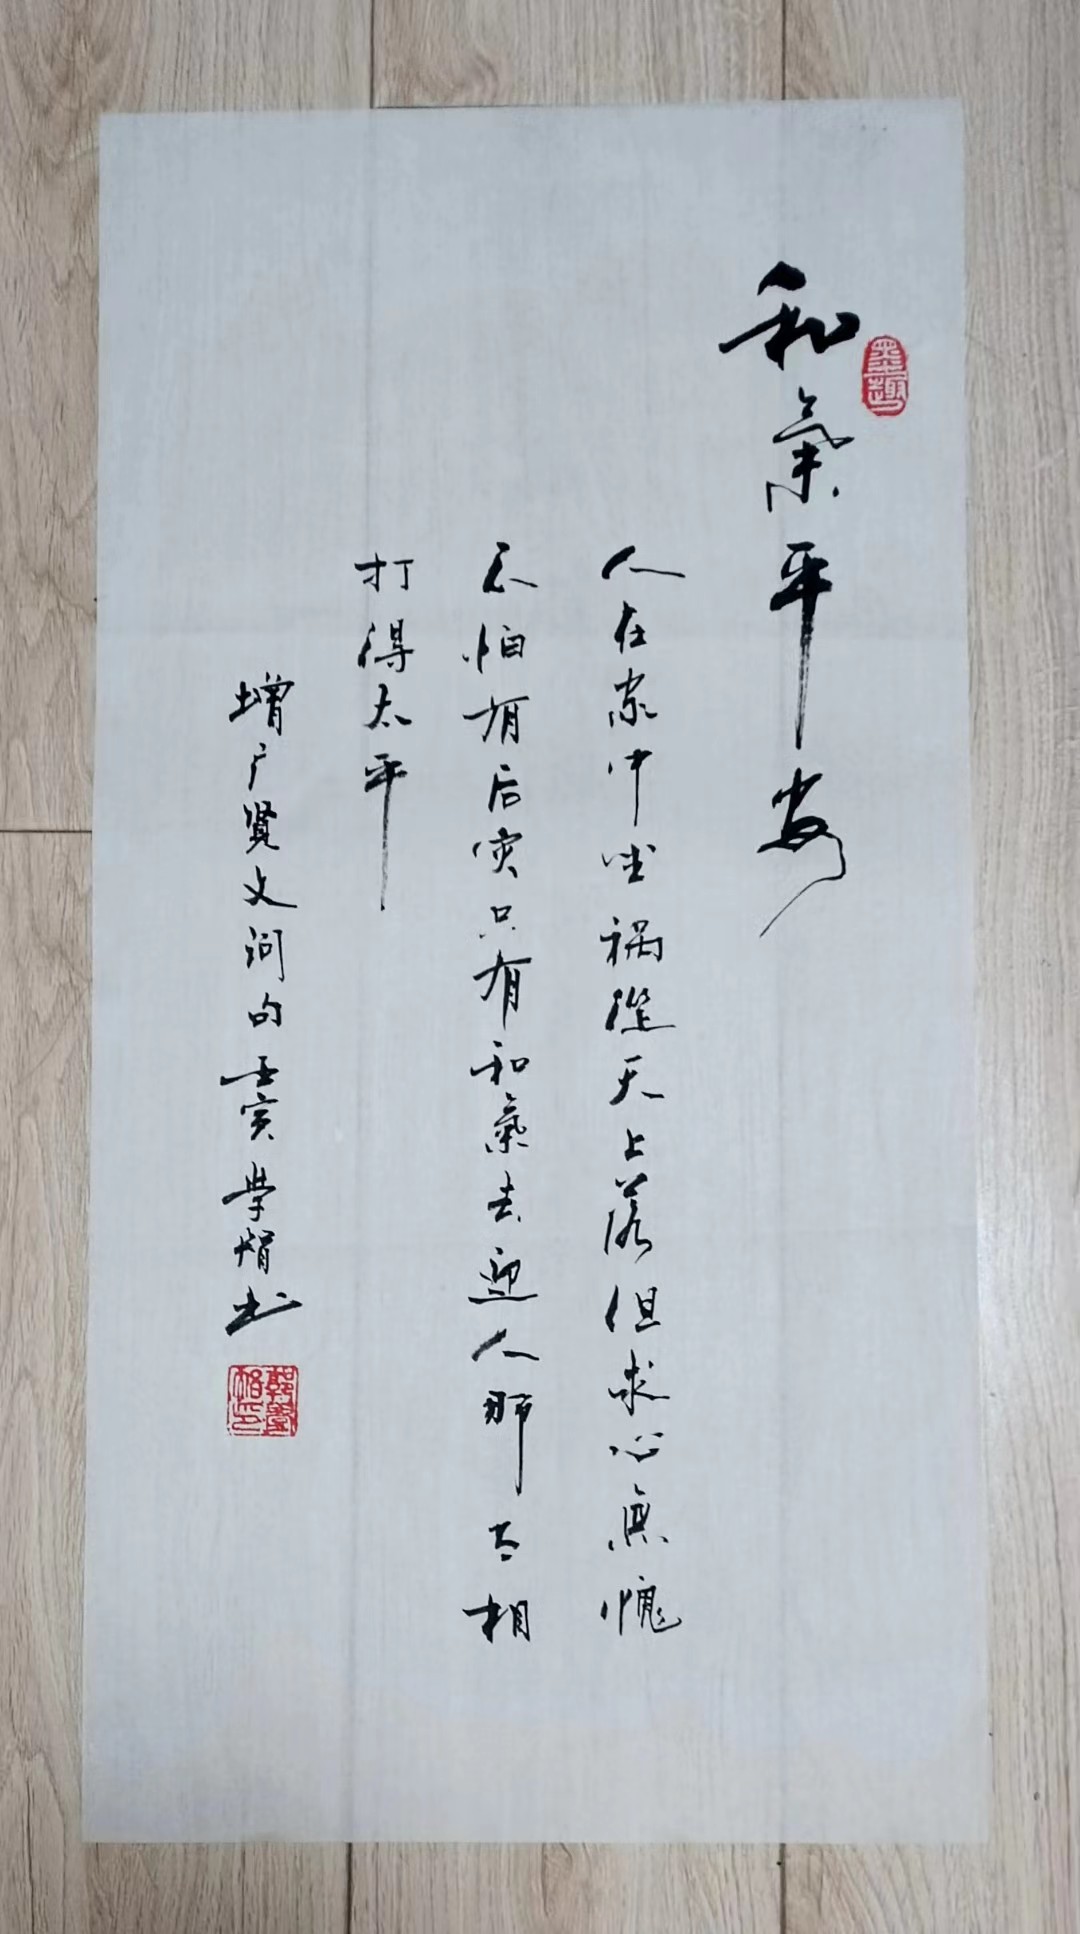 和氣平安
人在家中坐祸從天上落但求心無愧
不怕有后灾只有和氣去迎人那有相
打得太平
增广贤文词句壬寅学娟书
墨趣